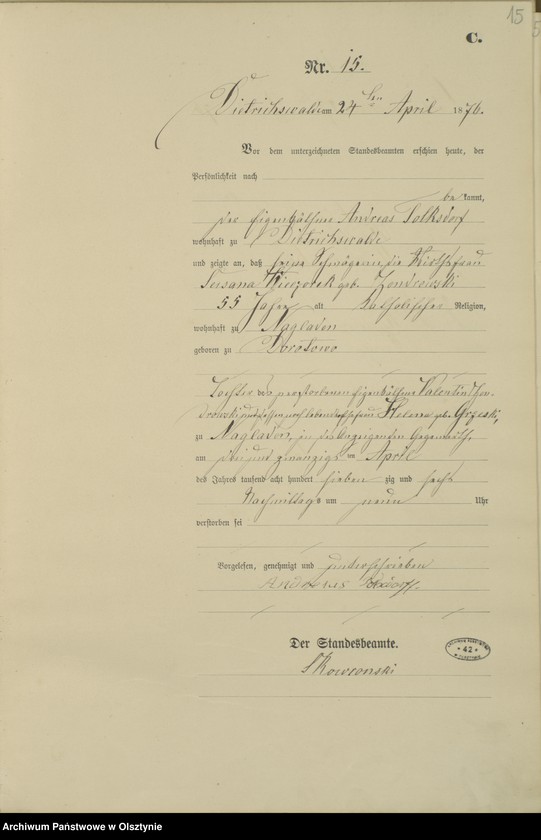 15
C.
Nr. 15.
Dietrichswalde am 24ten April 1876.
Vor dem unterzeichneten Standesbeamten erschien heute, der
Persönlichkeit nach
bekannt,
der Eigenkäthner Andreas Tolksdorf
wohnhaft zu Dietrichswalde
und zeigte an, daß seine Schwägerin die Wirthsfrau
Susana Wieczorek geb.
55 Jahre alt katholischer Religion,
wohnhaft zu Nagladen
geboren zu Dorotowo
Tochter des verstorbenen Eigenkäthner Valentin
und dessen noch lebende Ehefrau Helena geb. Grzeski,
zu Nagladen, in des Anzeigenden Gegenwart,
am drei und zwanzigsten April
des Jahres tausend acht hundert sieben zig und sechs
Nachmittags um neun Uhr
verstorben sei
Vorgelesen, genehmigt und unterschrieben
Andreas
Der Standesbeamte.
42
Archiwum Państwowe w Olsztynie